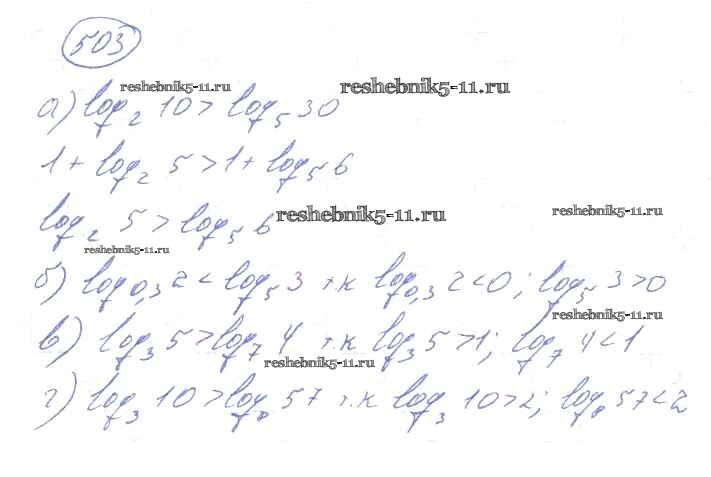 503
reshebnik5-11.ru reshebnik5-11.ru
а) log₂ 10 > log₅ 30
1 + log₂ 5 > 1 + log₅ 6
log₂ 5 > log₅ 6 reshebnik5-11.ru reshebnik5-11.ru
reshebnik5-11.ru
б) log₀,₃ 2 < log₅ 3 т.к log₀,₃ 2 < 0; log₅ 3 > 0
reshebnik5-11.ru
в) log₃ 5 > log₇ 4 т.к log₃ 5 > 1; log₇ 4 < 1
reshebnik5-11.ru
г) log₃ 10 > log₈ 57 т.к log₃ 10 > 2; log₈ 57 < 2